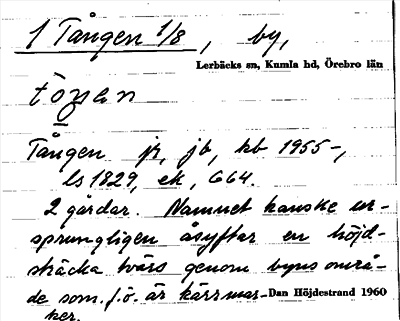 1 Tången 1/8, by,
Lerbäcks sn, Kumla hd, Örebro län
Tången jr, jb, kb 1955-,
ls 1829, ek, G64.
2 gårdar. Namnet kanske ur-
sprungligen åsyftar en höjd-
sträcka tvärs genom byns områ-
de som f.ö. är kärrmar-
ker.
Dan Höjdestrand 1960